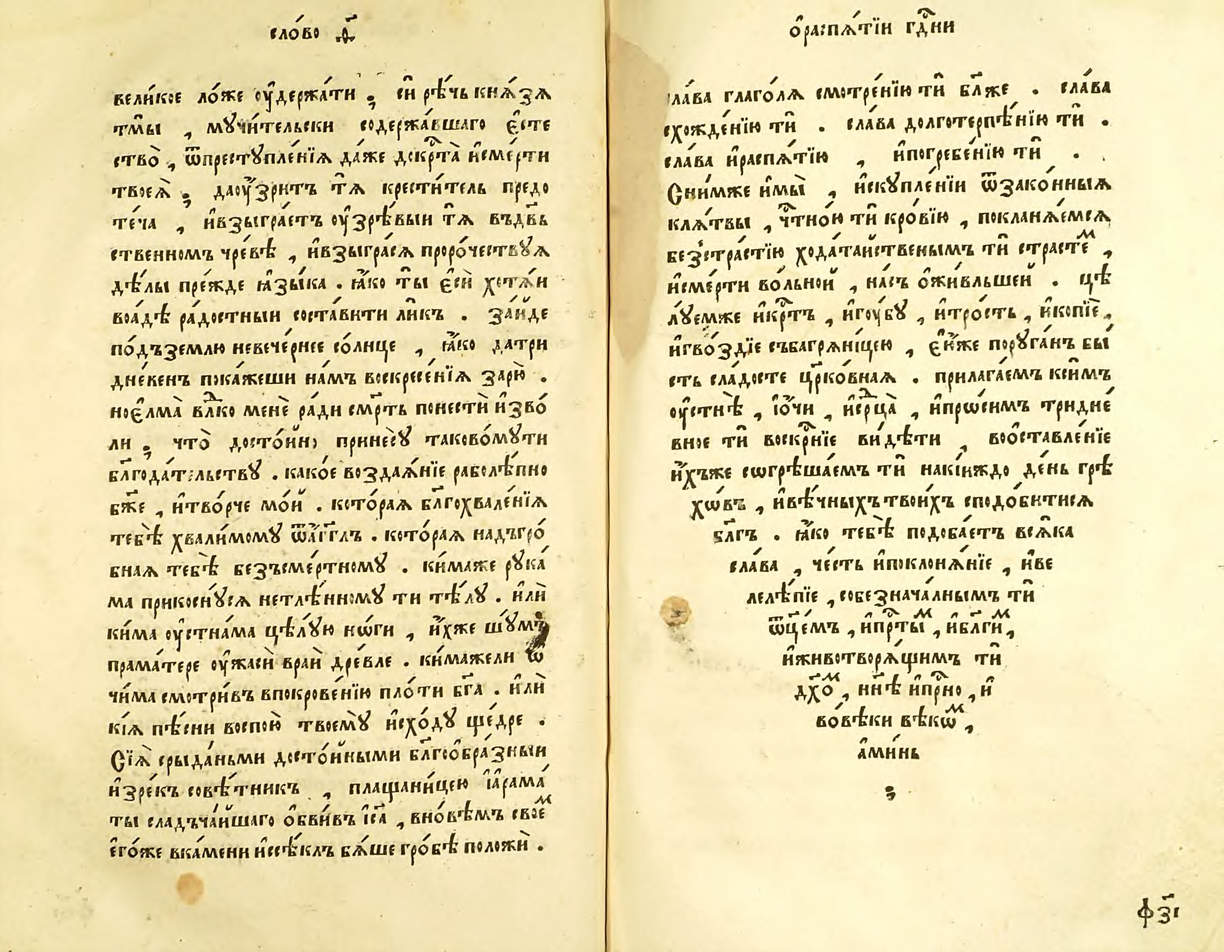 сло́во ѕ҃
вели́кое ло́же ᲂу҆держа́ти ; си рѣ́чь кнѧ́зѧ
тмы̀ , мꙋчи́тельски содержа́вшаго є҆сте
ство̀ , ѿпреступле́нїѧ да́же докрⷭ҇та̀ и҆сме́рти
твоеѧ̀ ; даᲂу҆́зритъ тѧ̀ крести́тель предо
те́ча , и҆взыгра́етъ ᲂу҆зрѣ́выи тѧ̀ въдв҃ь
ственномъ чре́вѣ , и҆взыгра́сѧ проро́чествꙋѧ
дѣ́лы пре́жде ꙗ҆зы́ка . ꙗ҆́ко ты̀ є҆сѝ хотѧ́и
воа́дѣ ра́достныи соста́вити ли́къ . за́йде
по́дъземлю невече́рнее со́лнце , ꙗ҆́ко датри
дне́венъ пока́жеши на́мъ воскресе́нїѧ зарю̀ .
ноє҆лма̀ влⷣко менѐ ра́ди сме́рть понестѝ и҆зво́
ли ; что̀ досто́йно принесꙋ̀ таково́мꙋти
бл҃года́тельствꙋ . како́е воздаѧ́нїе раболѣ́пно
бж҃е , и҆тво́рче мо́й . кото́раѧ бл҃гохвале́нїѧ
тебѣ̀ хвали́момꙋ ѿа҆́гг҃лъ . кото́раѧ надъгро́
бнаѧ тебѣ̀ безъсме́ртномꙋ . ки́маже рꙋка́
ма прикоснꙋ́сѧ нетлѣ́нномꙋ ти тѣ́лꙋ . и҆лѝ
ки́ма ᲂу҆стна́ма цѣлꙋ́ю но́ги , и҆́хже шꙋ́мъ
прама́тере ᲂу҆жасѝ вра́й дре́вле . ки́мажели ѻ҆
чи́ма смотри́въ впокрове́нїю пло́ти бг҃а . и҆лѝ
кі́ѧ пѣ́сни воспою̀ твоемꙋ̀ и҆схо́дꙋ ще́дре .
Сїѧ̀ срыда́ньми досто́йными бл҃гоѻбра́зныи
и҆зре́къ совѣ́тникъ , плащани́цею їа҆рама́
ты сладъча́йшаго ѻ҆бви́въ і҆с҃а , вно́вѣмъ свое́ⷨ
є҆го́же вка́мени и҆сѣ́клъ бѧ́ше гро́бѣ положѝ .
ѻ҆распѧ́тїи гдⷭ҇ни
сла́ва глаго́лѧ смотре́нїю тѝ бл҃же . сла́ва
схожде́нїю тѝ . сла́ва долготерпѣ́нїю тѝ .
сла́ва и҆распѧ́тїю , и҆погребе́нїю тѝ .
Сни́мже и҆мы̀ , и҆скупле́нїи ѿзако́нныѧ
клѧ́твы , чⷭ҇тно́ю тѝ кро́вїю , покланѧ́емсѧ
безстра́стїю хода́тайственымъ тѝ страсте́ⷨ ,
и҆сме́рти во́льной , на́съ ѻ҆жи́вльшей . цѣ
лꙋ́емже и҆крⷭ҇тъ , и҆гоу́бꙋ , и҆тро́сть , и҆копїѐ ,
и҆гво́здїе събагрѧни́цею , є҆ю́же порꙋ́ганъ бы́
сть сла́досте цр҃ко́внаѧ . прилага́емъ кси́мъ
ᲂу҆стнѣ̀ , і҆ѻ҆́чи , и҆срⷣца̀ , и҆про́симъ тридне́
вное тѝ воскрⷭ҇нїе ви́дѣти , воѻставле́нїе
и҆́хъже согрѣша́емъ тѝ наки́йждо де́нь грѣ
хо́въ , и҆вѣ́чныхътвои́хъ сподо́битисѧ
бл҃гъ . ꙗ҆́ко тебѣ̀ подоба́етъ всѧ́ка
сла́ва , че́сть и҆поклонѧ́нїе , и҆ве
леле́пїе , собезнача́лнымъ тѝ
ѻ҆ц҃е́мъ , и҆прⷭ҇ты́ⷨ , и҆бл҃ги́ⷨ ,
и҆животворѧ́щимъ тѝ
дх҃о́ⷨ , нн҃ѣ и҆прⷭ҇но , и҆
во́вѣки вѣ́кѡⷨ ,
а҆ми́нь
ф҃зі